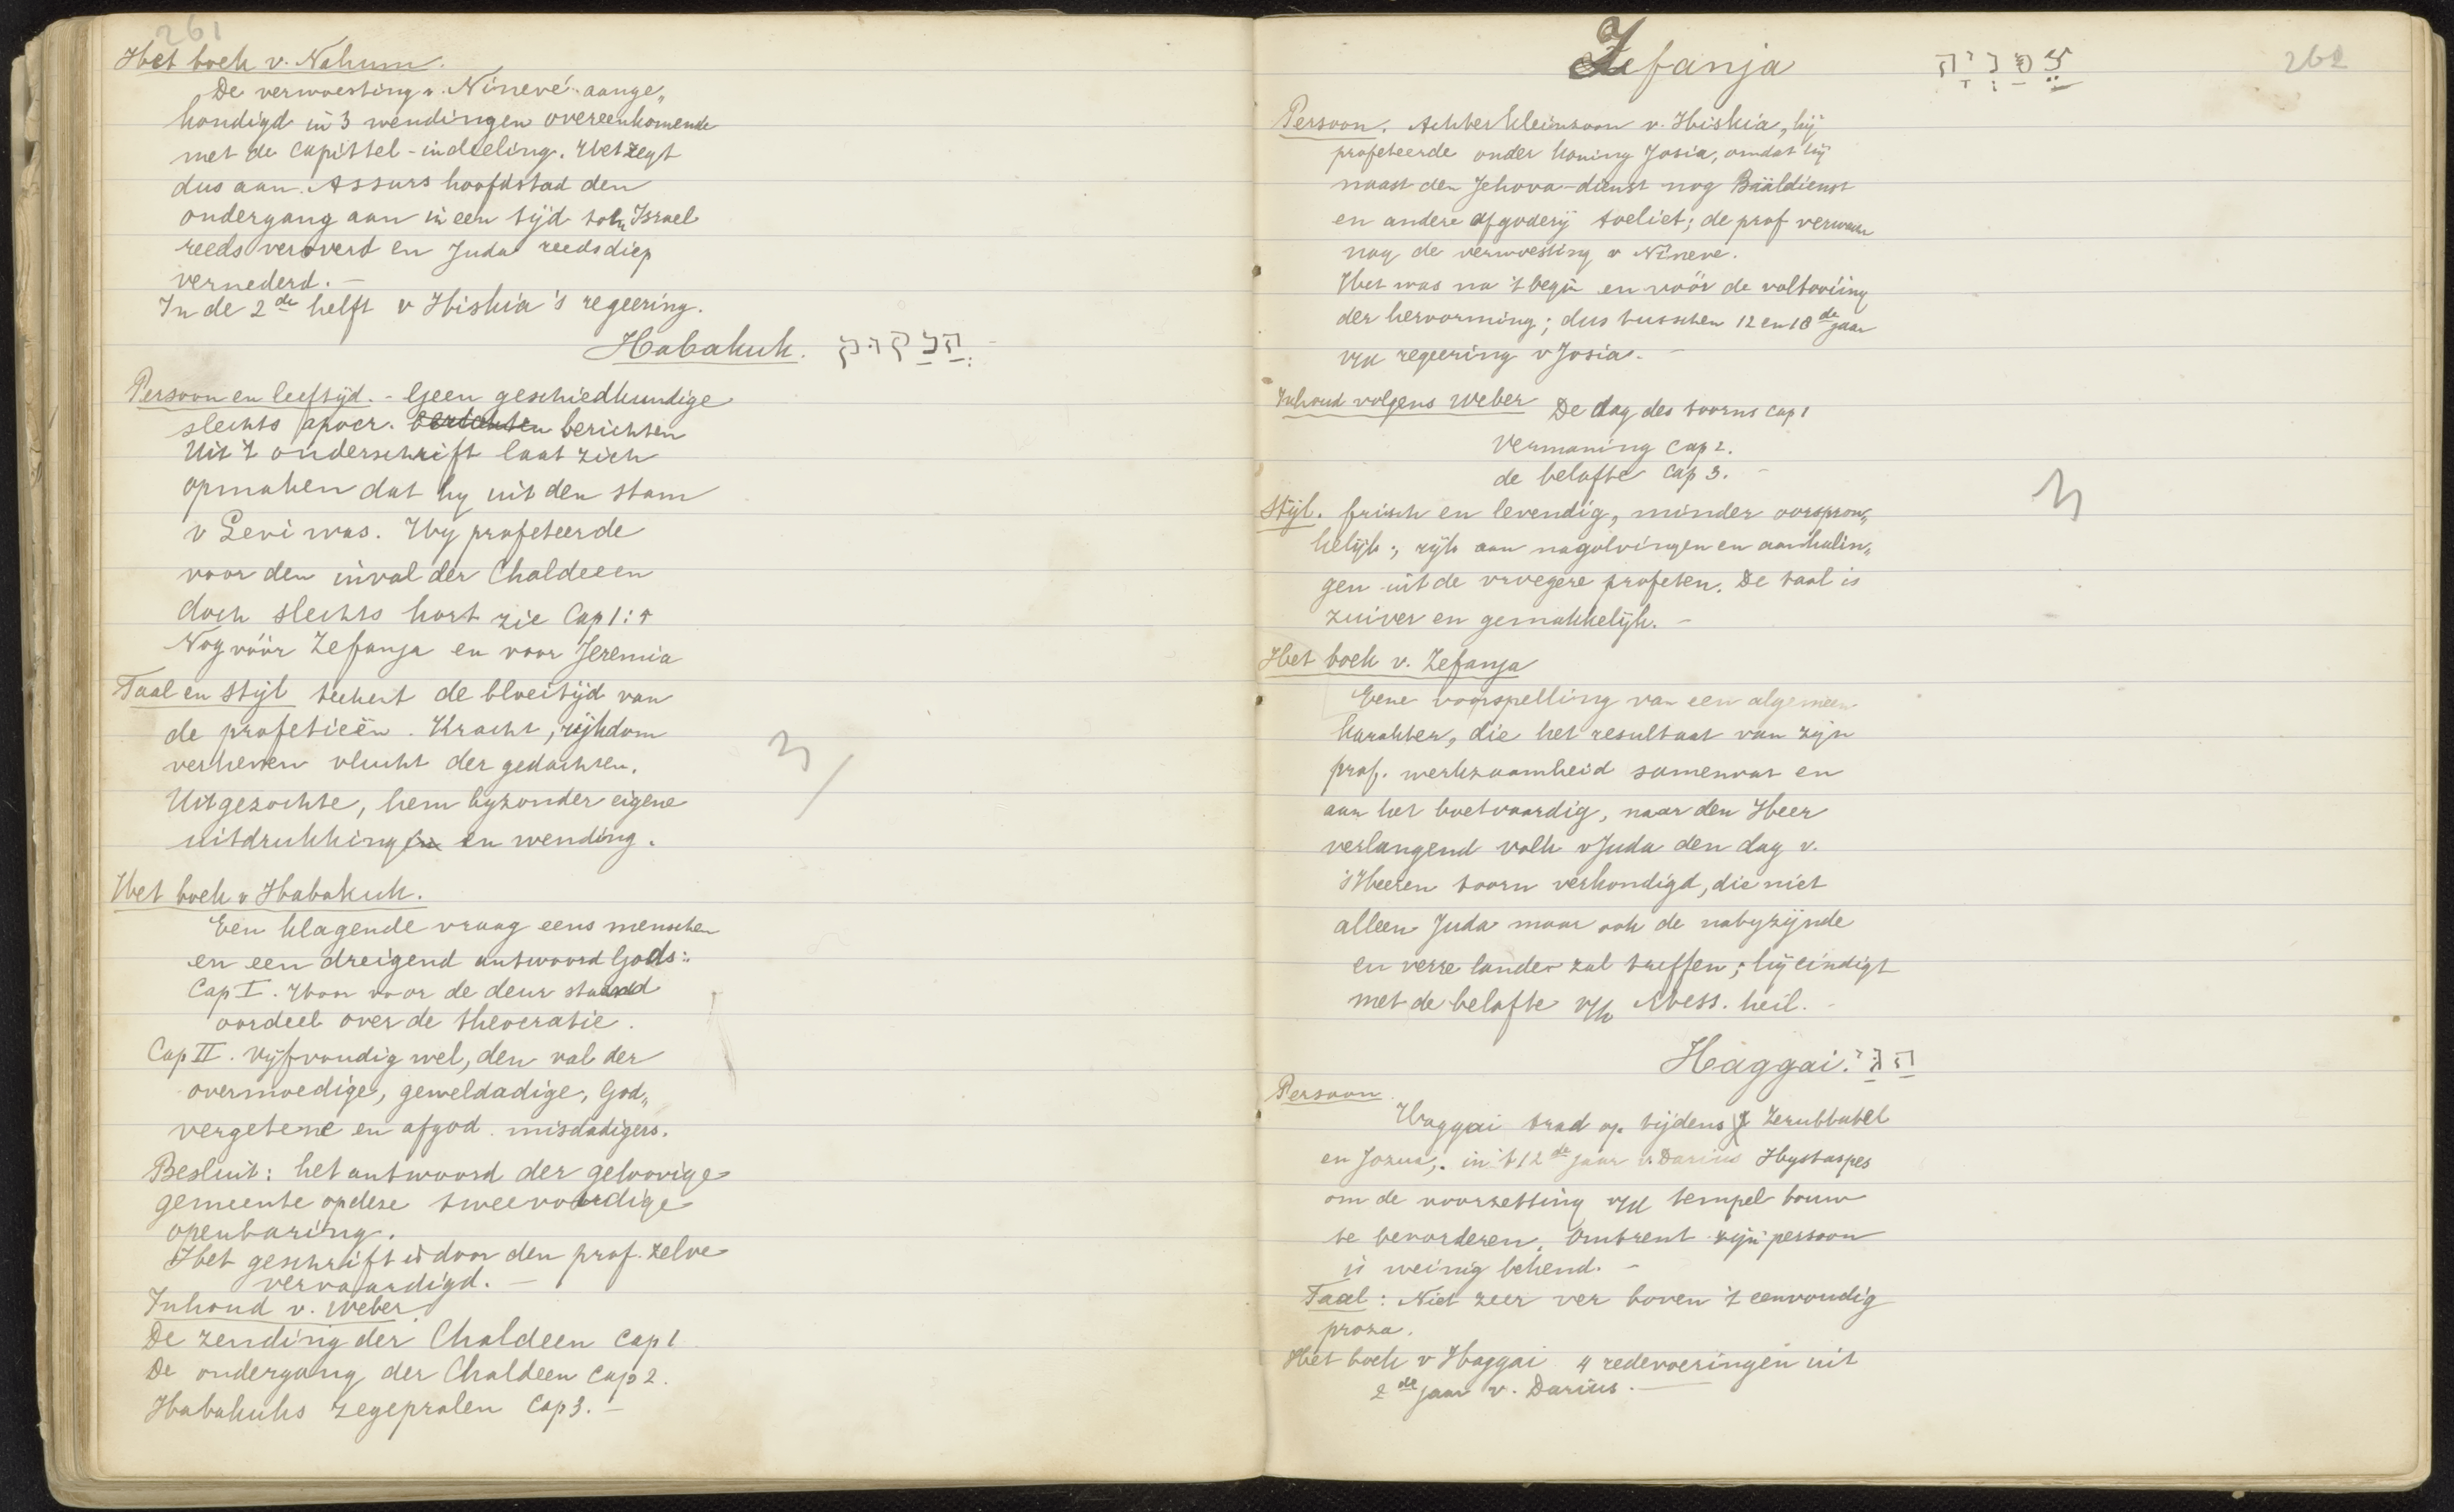 261
Het boek v. Nahum.
De verwoesting v. Ninevé aange„
kondigd in 3 wendingen overeenkomende
met de capittel-indeeling. Het zegt
dus aan Assurs hoofdstad den
ondergang aan in een tijd toen Israel
reeds veroverd en Juda reeds diep
vernederd. –
In de 2de helft v Hiskia's regeering.
Habakuk. חבקוק
Persoon en leeftijd. - Geen geschiedkundige
slechts apocr. berichten berichten
Uit 't onderschrift laat zich
opmaken dat hy uit den stam
v Levi was. Hy profeteerde
voor den inval der Chaldeeen
doch slechts kort zie Cap 1:5
Nog vóór Zefanja en voor Jeremia
Taal en Stijl teekent de bloeitijd van
de profetieën. Kracht, rijkdom
verheven vlucht der gedachten.
Uitgezochte, hem byzonder eigene
uitdrukkingen en wending.
Het boek v Habakuk.
Een klagende vraag eens menschen
en een dreigend antwoord Gods:
Cap I. Waar voor de deur staand
oordeel over de theocratie.
Cap II. Vijfvoudig wel, den val der
overmoedige, geweldadige, God„
vergetene en afgod. misdadigers.
Besluit: het antwoord der geloovige
gemeente op deze tweevoudige
openbaring.
Het geschrift is door den prof. zelve
vervaardigd. –
Inhoud v. Weber
De zending der Chaldeen Cap 1
De ondergang der Chaldeen Cap 2.
Habakuks zegepralen Cap 3. –
262
Zefanja צפניה
Persoon. Achterkleinzoon v. Hiskia, hij
profeteerde onder koning Josia, omdat hij
naast den Jehova-dienst nog Baäldienst
en andere afgoderij toeliet; de prof verwacht
nog de verwoesting v Nineve.
Het was na 't begin en vóór de voltooiing
der hervorming; dus tusschen 12 en 18de jaar
v/d regeering v Josia. –
Inhoud volgens Weber De dag des toorns Cap 1
Vermaning Cap 2.
de belofte Cap 3. –
Stijl. frisch en levendig, minder oorspron„
kelijk; rijk aan nagolvingen en aanhalin„
gen uit de vroegere profeten. De taal is
zuiver en gemakkelijk. –
Het boek v. Zefanja
Eene voorspelling van een algemeen
karakter, die het resultaat van zijn
prof. werkzaamheid samenvat en
aan het boetvaardig, naar den Heer
verlangend volk v Juda den dag v.
's Heeren toorn verkondigd, die niet
alleen Juda maar ook de nabyzijnde
en verre landen zal treffen; hij eindigt
met de belofte v/h Mess. heil. –
Haggai. חגי
Persoon
Haggai trad op tijdens Zerubbabel
en Jozua, in 't 12de jaar v. Darius Hystaspes
om de voorzetting v/d tempel bouw
te bevorderen. Omtrent zijn persoon
is weinig bekend. –
Taal: Niet zeer ver boven 't eenvoudig
proza.
Het boek v Haggai 4 redevoeringen uit
2de jaar v. Darius. –